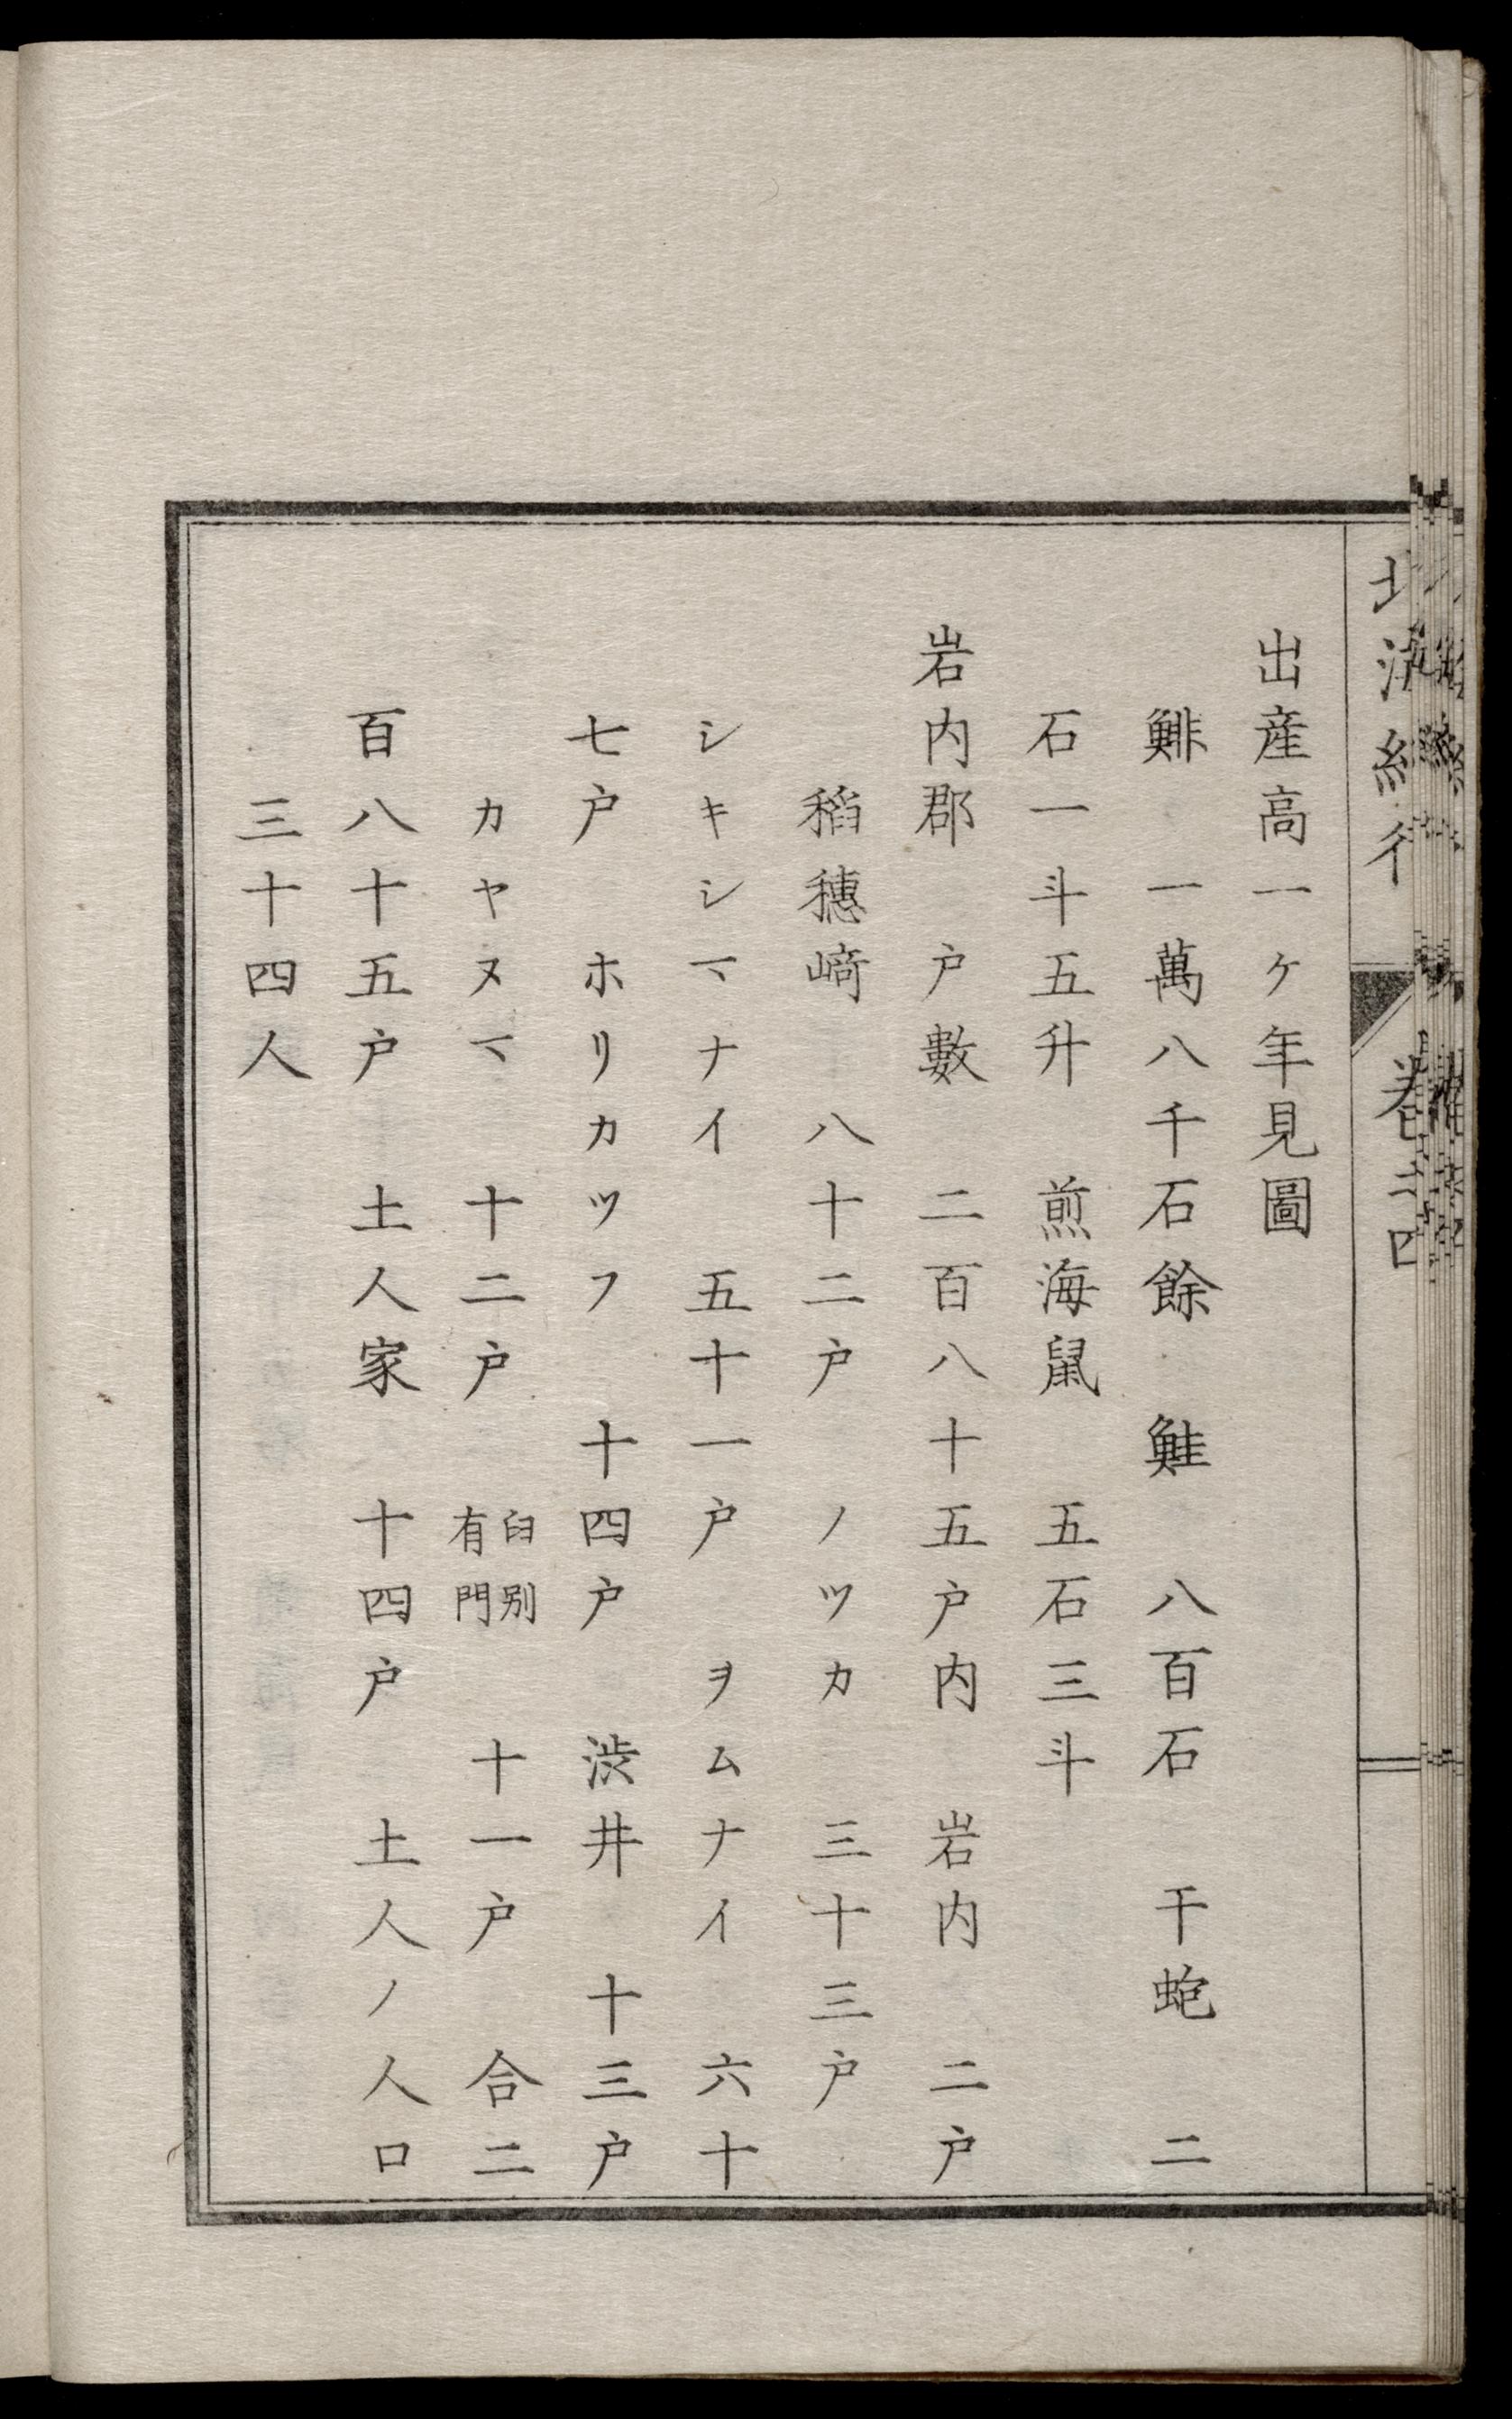 出産高一ヶ年見圖
鯡　一萬八千石餘　鮭　八百石　干鮑　二
石一斗五升　煎海鼠　五石三斗
岩内郡　戸數　二百八十五戸内　岩内　二戸
稻穗﨑　八十二戸　ノツカ　三十三戸
シキシマナイ　五十一戸　ヲムナイ　六十
七戸　ホリカツフ　十四戸　渋井　十三戸
カヤヌマ　十二戸　臼别
有門　十一戸　合二
百八十五戸　土人家　十四戸　土人ノ人口
三十四人